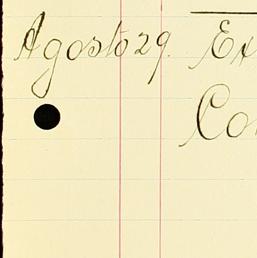 Agosto 29. Ex
Con